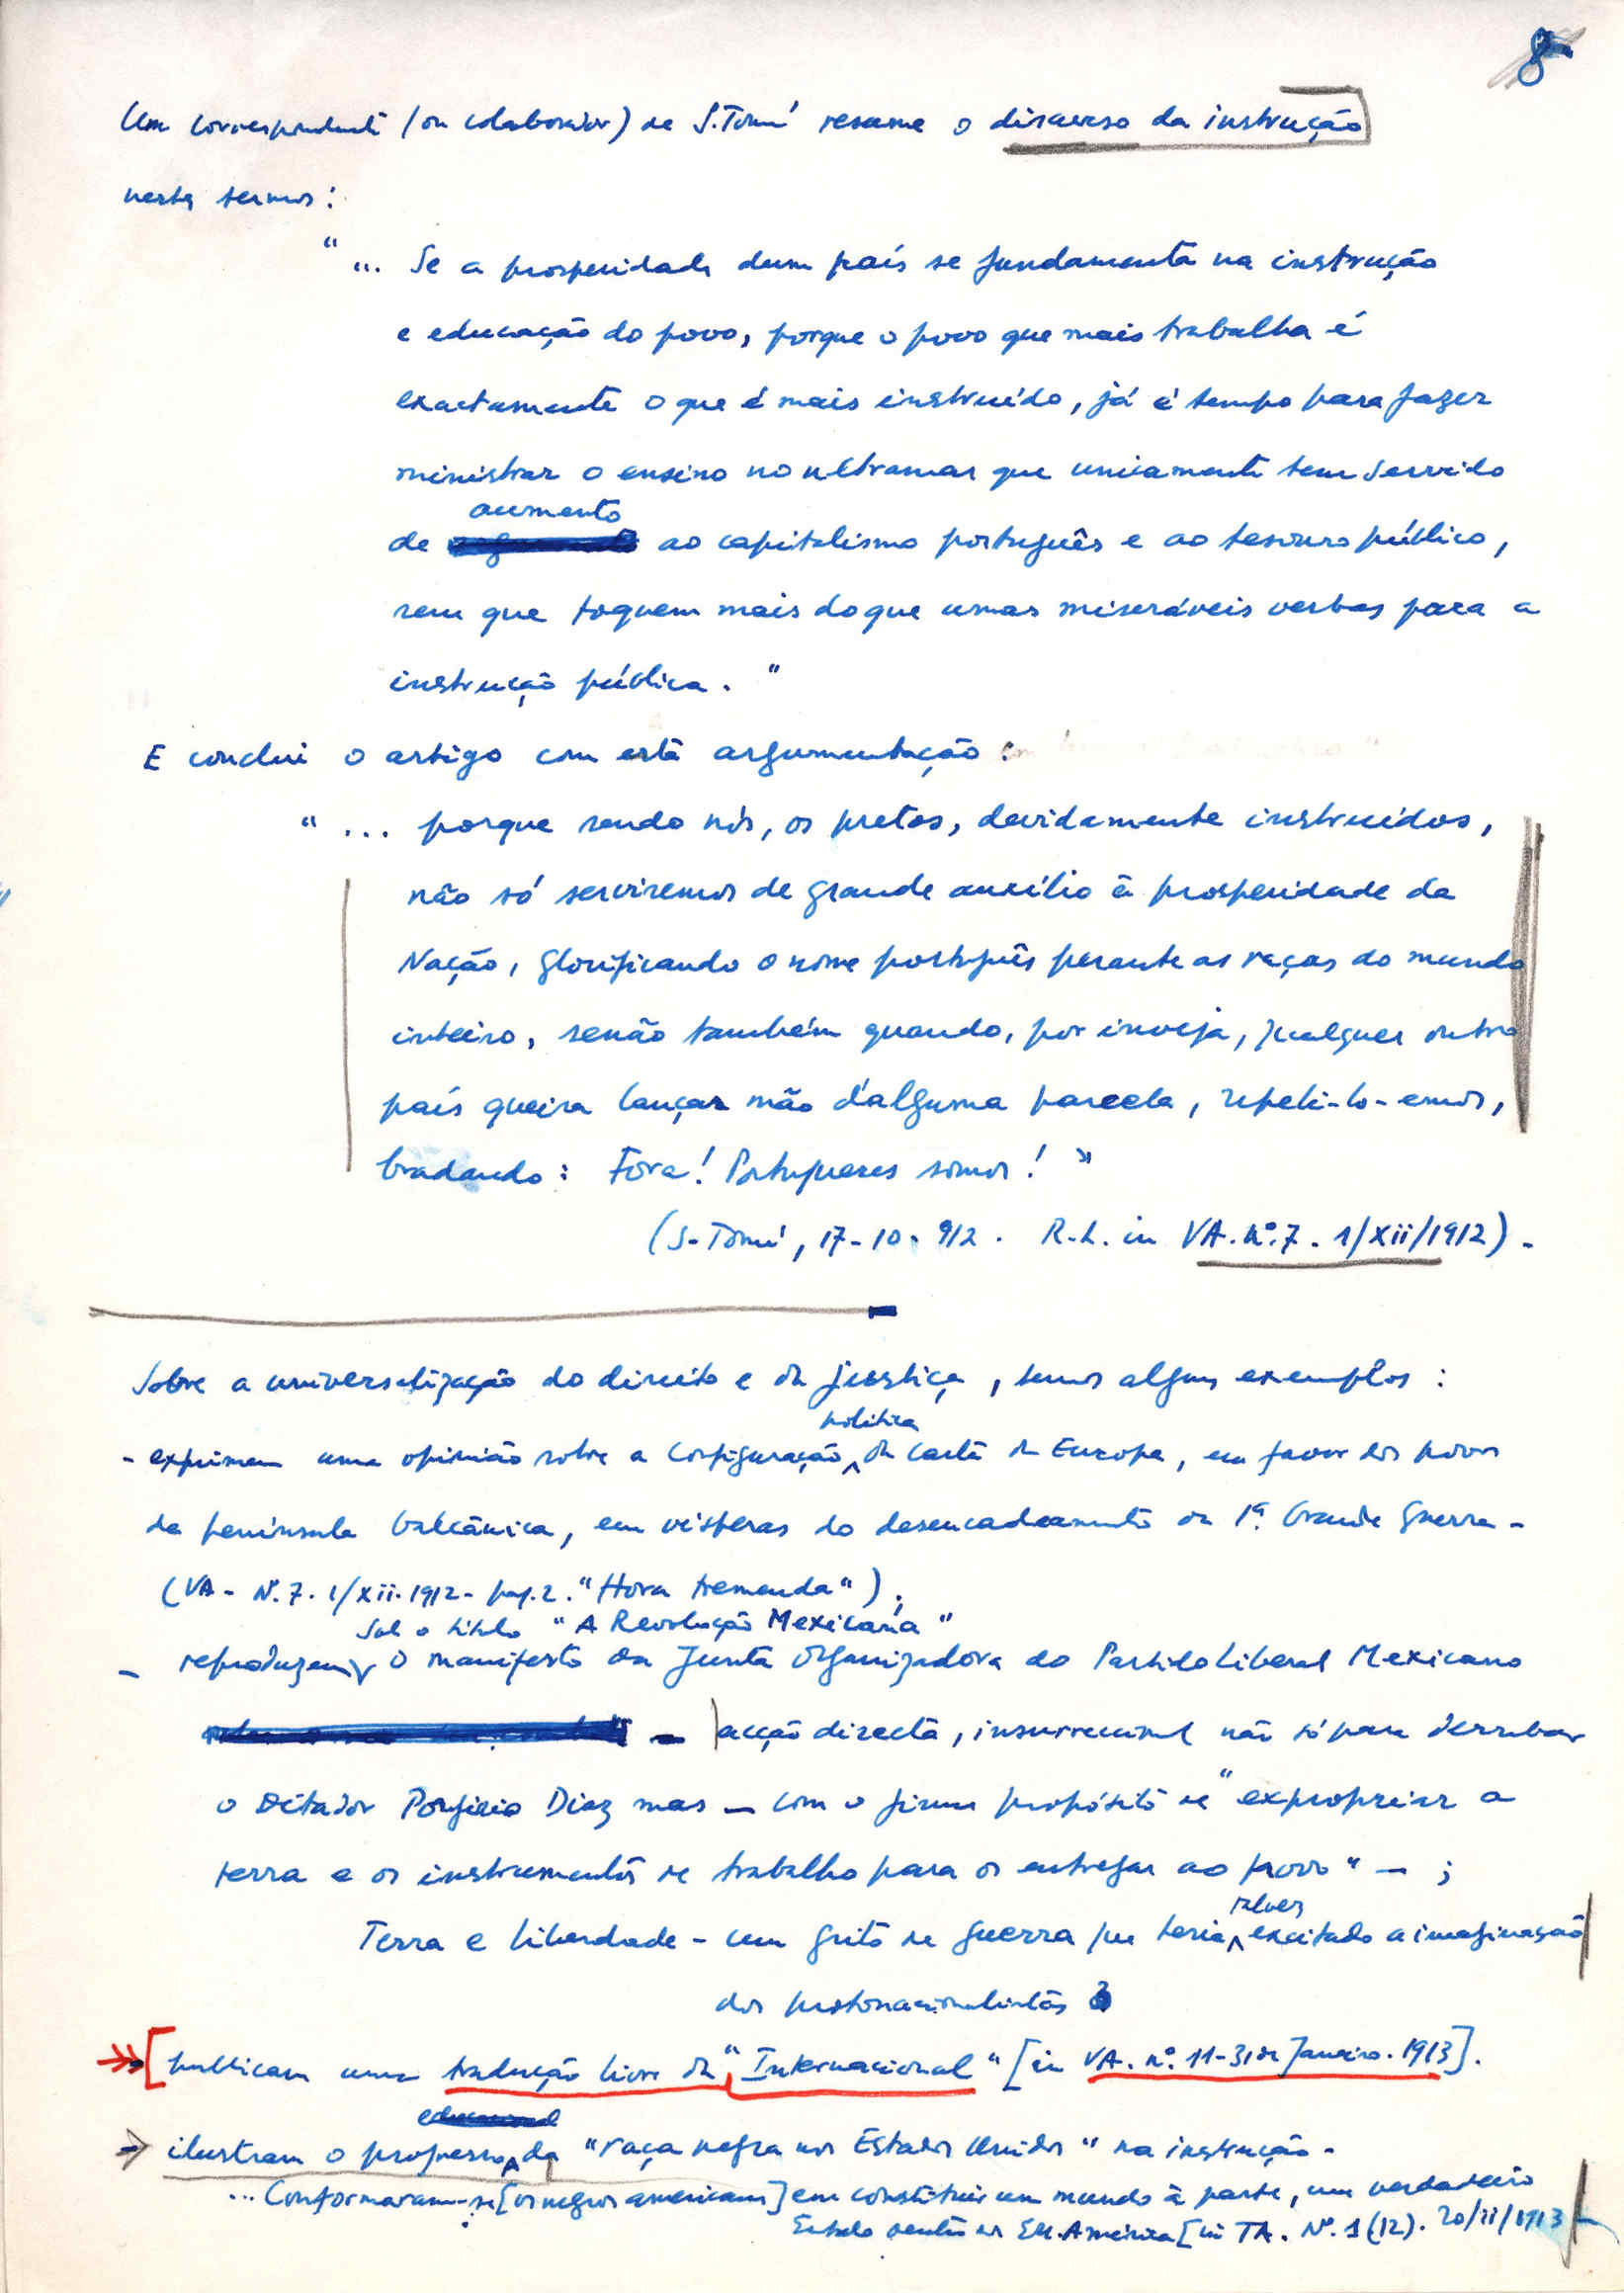 8
Um correspondente (ou colaborador) de S. Tomé resume o discurso da instrução
nestes termos:
"... Se a prosperidade dum país se fundamenta na instrução
e educação do povo, porque o povo que mais trabalha é
exactamente o que é mais instruído, já é tempo para fazer
ministrar o ensino no ultramar que unicamente tem servido
aumento
de ao capitalismo português e ao tesouro público,
sem que toquem mais do que umas miseráveis verbas para a
instrução pública."
E conclui o artigo com esta argumentação:
"... porque sendo nós, os pretos, devidamente instruídos,
não só serviremos de grande auxílio à prosperidade da
Nação, glorificando o nome português perante as raças do mundo
inteiro, senão também quando, por inveja, qualquer outro
país queira lançar mão d'alguma parcela, repeli-lo-emos,
bradando: Fora! Portugueses somos!"
(S. Tomé, 17-10-912. R.L. in VA. nº. 7. 1/XII/1912).
Sobre a universalização do direito e da justiça, temos alguns exemplos:
política
- exprimem uma opinião sobre a configuração da carta da Europa, em favor dos povos
da península balcânica, em vésperas do desencadeamento da 1ª. Grande Guerra -
(VA - Nº. 7. 1/XII.1912 - pag. 2. "Hora tremenda");
Sob o título "A Revolução Mexicana"
- reproduzem o manifesto da Junta Organizadora do Partido Liberal Mexicano
- acção directa, insurreccional não só para derrubar
o ditador Porfírio Diaz mas - com o firme propósito de "expropriar a
terra e os instrumentos de trabalho para os entregar ao povo" - ;
talvez
Terra e liberdade - um grito de guerra que teria excitado a imaginação
dos protonacionalistas
[publicam uma tradução livre da "Internacional" [in VA. nº. 11 - 31 de Janeiro. 1913].
ilustram o progresso da "raça negra nos Estados Unidos" na instrução -
... Conformaram-se [os negros americanos] em constituir um mundo à parte, um verdadeiro
Estado dentro da América [in TA. Nº. 1 (12). 20/II/1913